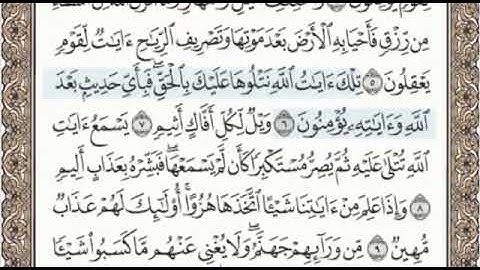 مِن رِّزْقٍ فَأَحْيَا بِهِ ٱلْأَرْضَ بَعْدَ مَوْتِهَا وَتَصْرِيفِ ٱلرِّيَٰحِ ءَايَٰتٌ لِّقَوْمٍ
يَعْقِلُونَ ٥ تِلْكَ ءَايَٰتُ ٱللَّهِ نَتْلُوهَا عَلَيْكَ بِٱلْحَقِّ ۖ فَبِأَىِّ حَدِيثٍۭ بَعْدَ
ٱللَّهِ وَءَايَٰتِهِۦ يُؤْمِنُونَ ٦ وَيْلٌ لِّكُلِّ أَفَّاكٍ أَثِيمٍ ٧ يَسْمَعُ ءَايَٰتِ
ٱللَّهِ تُتْلَىٰ عَلَيْهِ ثُمَّ يُصِرُّ مُسْتَكْبِرًا كَأَن لَّمْ يَسْمَعْهَا ۖ فَبَشِّرْهُ بِعَذَابٍ أَلِيمٍ
٨ وَإِذَا عَلِمَ مِنْ ءَايَٰتِنَا شَيْـًٔا ٱتَّخَذَهَا هُزُوًا ۚ أُو۟لَٰٓئِكَ لَهُمْ عَذَابٌ
مُّهِينٌ ٩ مِّن وَرَآئِهِمْ جَهَنَّمُ ۖ وَلَا يُغْنِى عَنْهُم مَّا كَسَبُوا۟ شَيْـًٔا